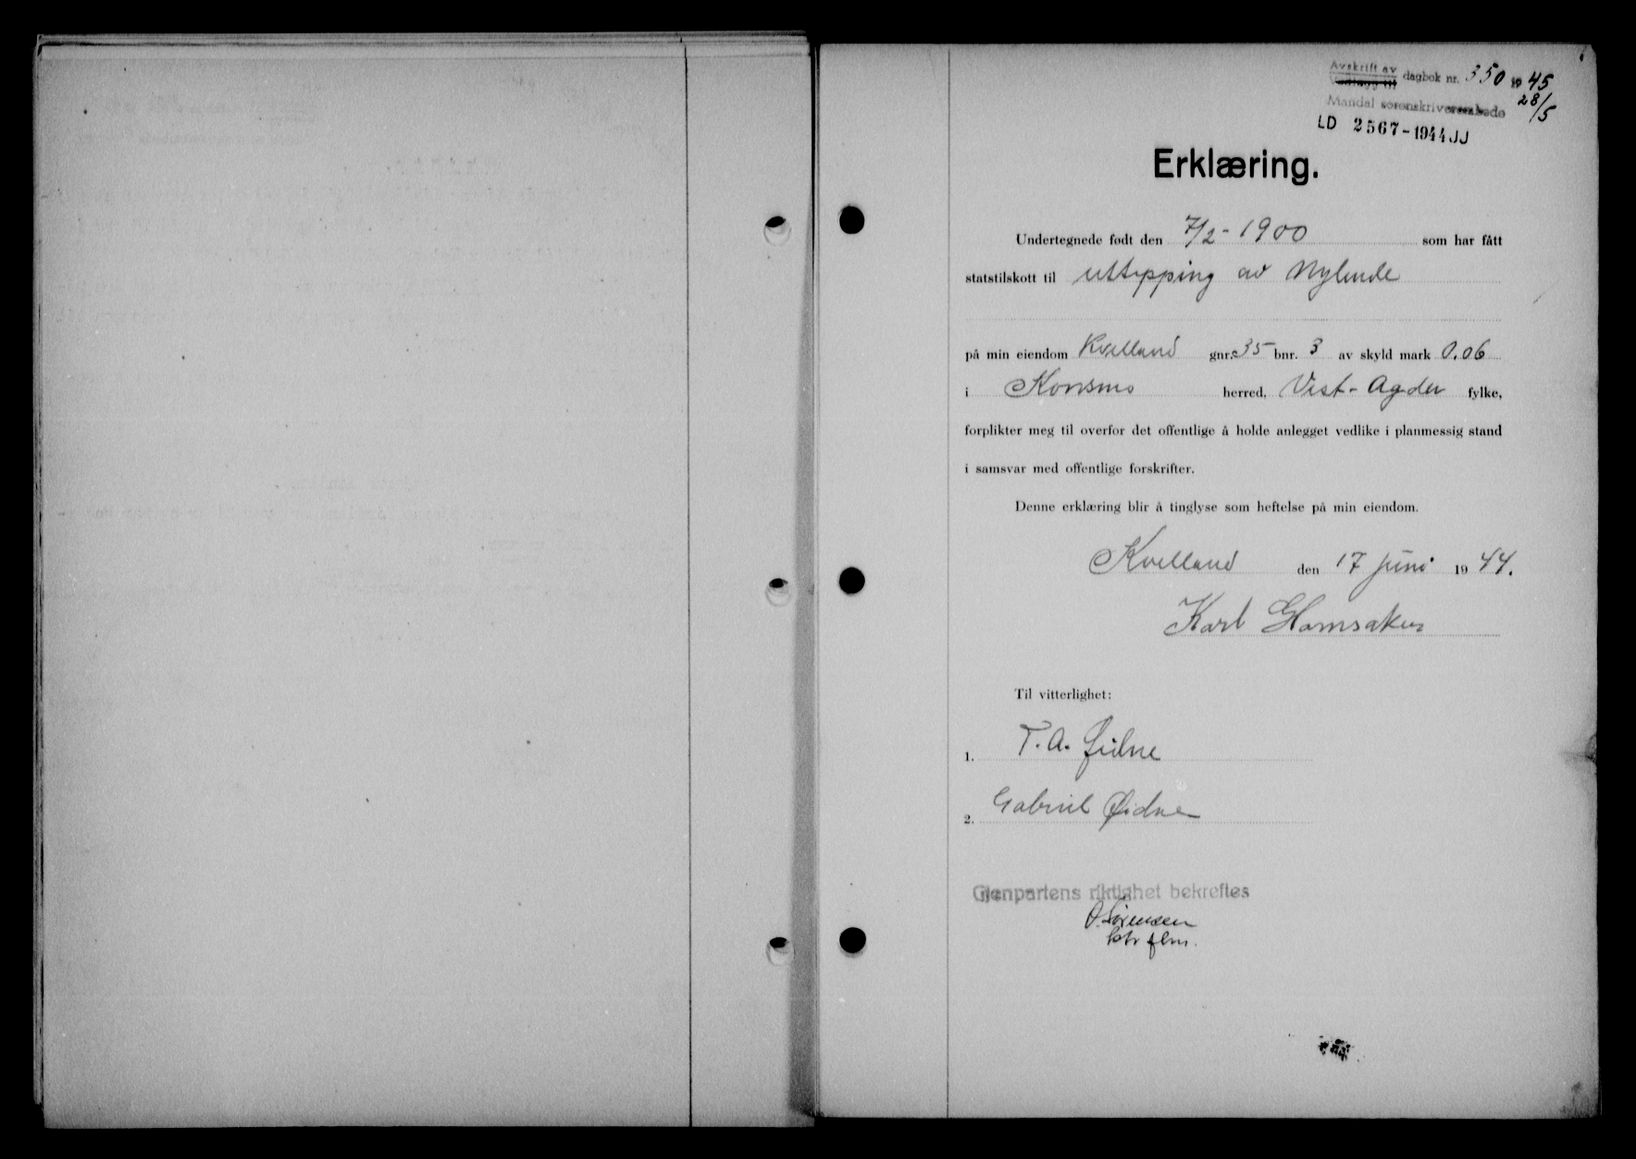 Avskrift av dagbok nr. 350 1945
Mandal sorenskriverembede 28/5
LD 2567-1944 JJ
Erklæring.
Undertegnede født den 7/2-1900 som har fått
statstilskott til uttapping av Nylende
på min eiendom Kvelland gnr. 35 bnr. 3 av skyld mark 0.06
i Konsmo herred, Vest-Agder fylke,
forplikter meg til overfor det offentlige å holde anlegget vedlike i planmessig stand
i samsvar med offentlige forskrifter.
Denne erklæring blir å tinglyse som heftelse på min eiendom.
Kvelland den 17 juni 1944.
Karl Homsaker
Til vitterlighet:
1. T. A. Øidne
2. Gabriel Øidne
Gjenpartens riktighet bekreftes
O. Sørensen
ktr flm.